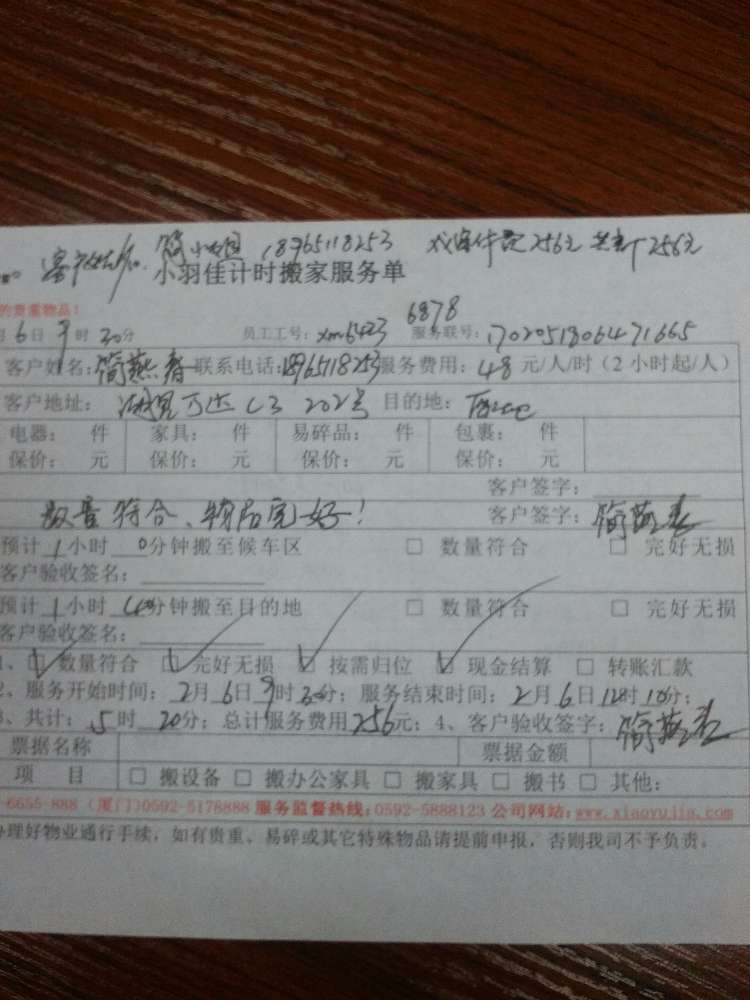 简小姐 18965118253 256元 共计256元
小羽佳计时搬家服务单
的贵重物品!
6878
月6日9时30分 员工工号:xm5423 服务联号:1702051806471665
客户姓名:简燕 联系电话:18965118253 服务费用:48元/人/时(2小时起/人)
客户地址:湖里万达C3 202号 目的地:
电器: 件 家具: 件 易碎品: 件 包裹: 件
保价: 元 保价: 元 保价: 元 保价: 元
客户签字:
数量符合、物品完好! 客户签字:简燕
预计1小时0分钟搬至候车区 □ 数量符合 □ 完好无损
客户验收签名:
预计1小时40分钟搬至目的地 □ 数量符合 □ 完好无损
客户验收签名:
1、☑ 数量符合 ☑ 完好无损 ☑ 按需归位 ☑ 现金结算 □ 转账汇款
2、服务开始时间:2月6日9时30分;服务结束时间:2月6日12时10分;
3、共计:5时20分;总计服务费用256元;4、客户验收签字:简燕
票据名称 票据金额
项 目 □ 搬设备 □ 搬办公家具 □ 搬家具 □ 搬书 □ 其他:
-6655-888(厦门)0592-5178888 服务监督热线:0592-5888123 公司网站:www.xiaoyujia.com
办理好物业通行手续,如有贵重、易碎或其它特殊物品请提前申报,否则我司不予负责。